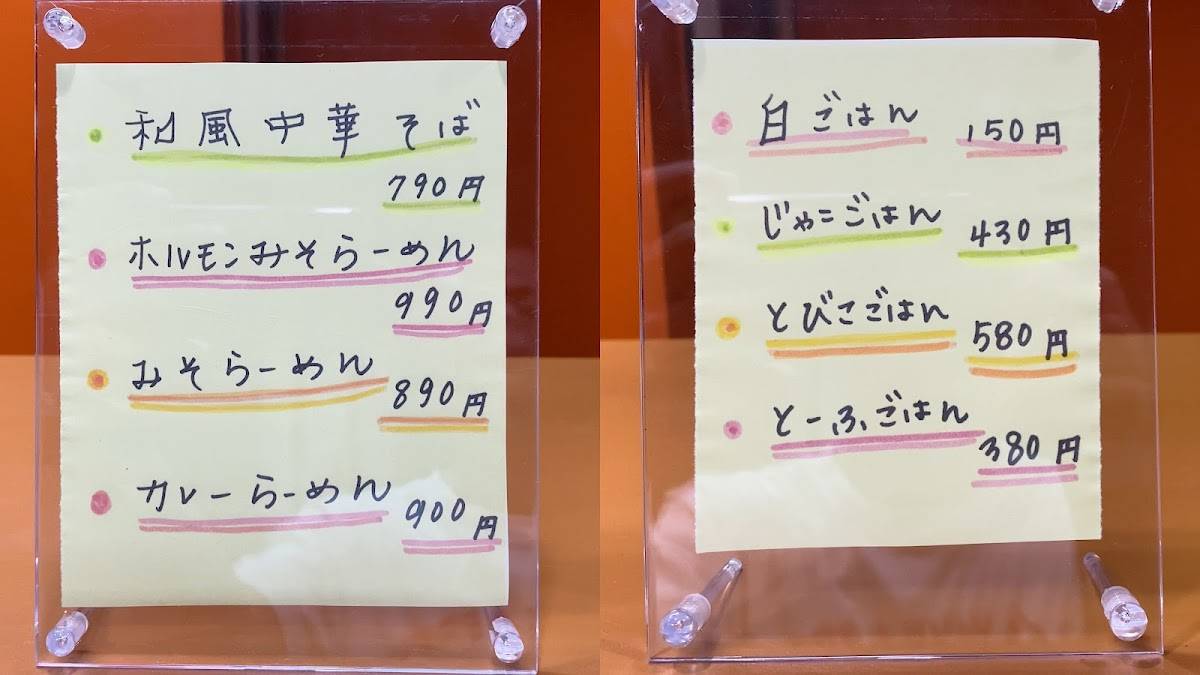 和風中華そば
790円
ホルモンみそらーめん
990円
みそらーめん
890円
カレーらーめん
900円
白ごはん 150円
じゃこごはん 430円
とびこごはん 580円
とーふごはん 380円